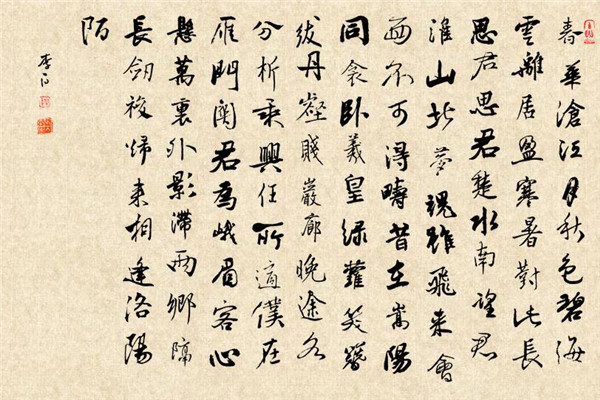 春華滄江月秋色碧海
雲離居盈寒暑對此長
思君思君楚水南望君
淮山北夢魂雖飛來會
面不可得疇昔在嵩陽
同衾臥羲皇綠蘿笑簪
紱丹壑賤巖廊晚途各
分析乘興任所適僕在
雁門關君為峨眉客心
懸萬裏外影滯兩鄉隔
長劍復歸來相逢洛陽
陌
李白